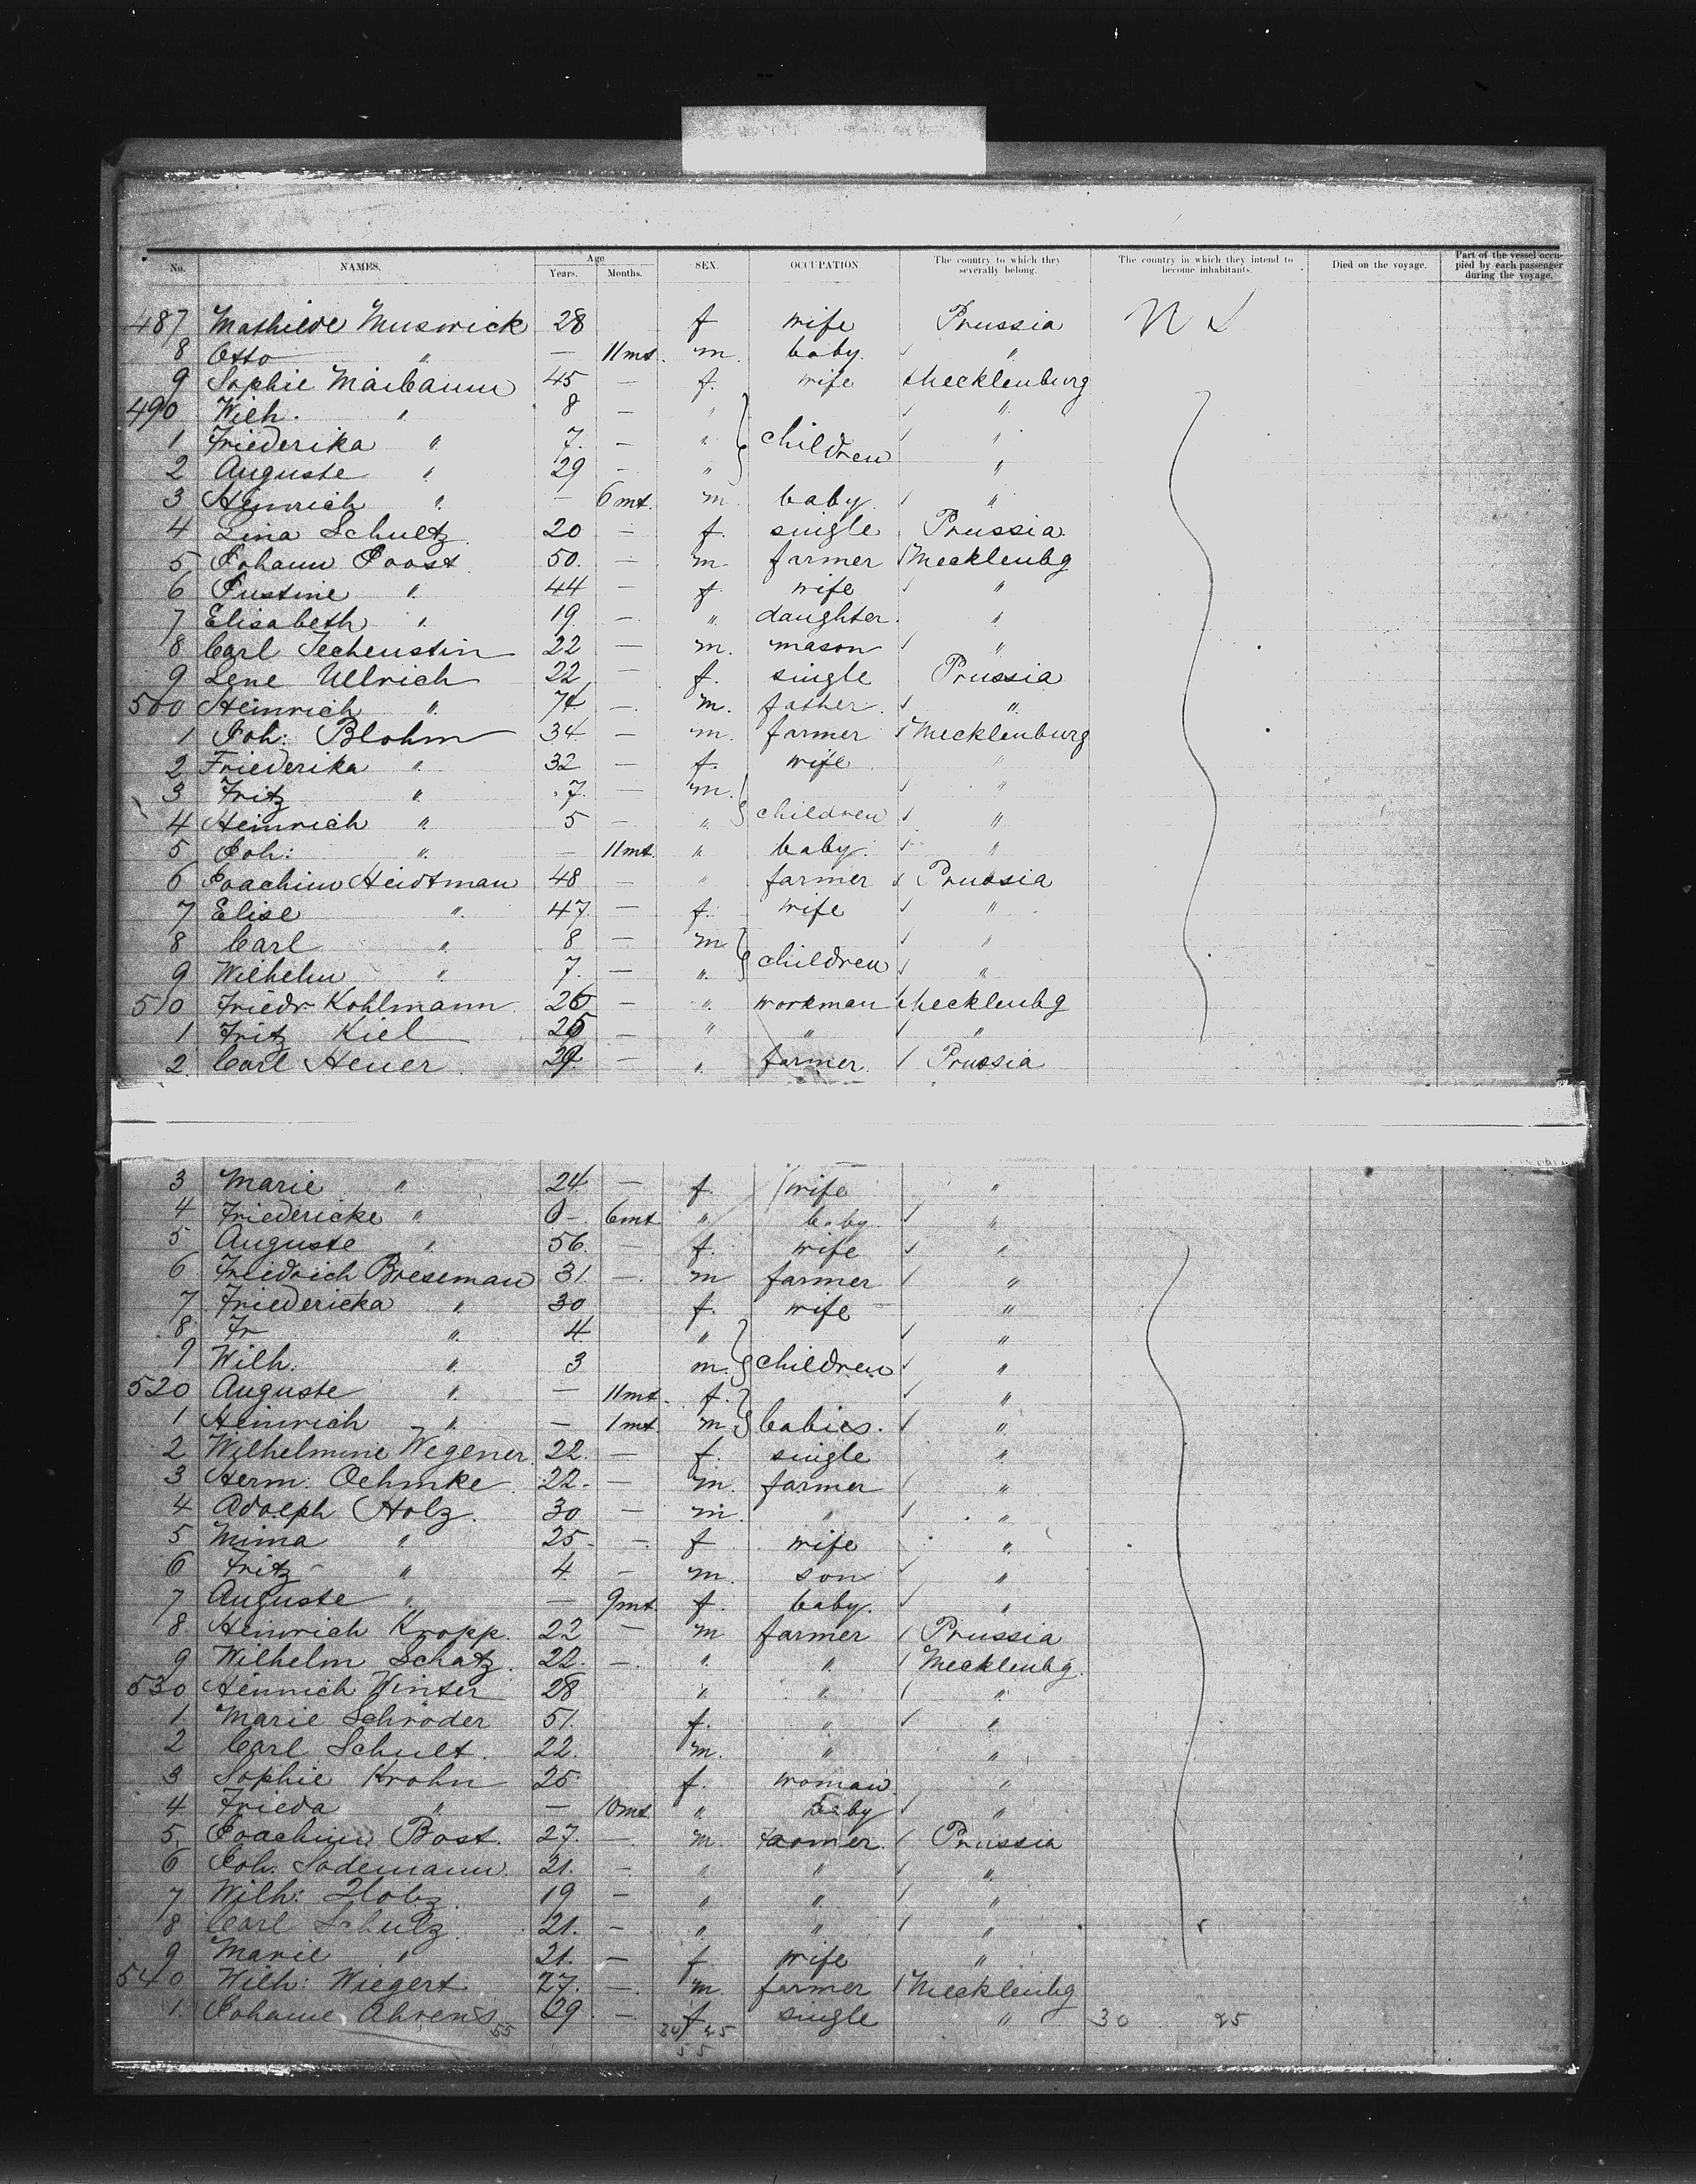 No. NAMES. Age Years. Months. SEX. OCCUPATION. The country to which they severally belong. The country in which they intend to become inhabitants. Died on the voyage. Part of the vessel occupied by each passenger during the voyage.
487 Mathilde Muswick 28 f wife Prussia
8 Otto " — 11mt. m. baby "
9 Sophie Maibaum 45 — f. wife Mecklenburg
490 Wilh. " 8 — " "
1 Friederika " 7. — " children "
2 Auguste " 29 — " "
3 Heinrich " — 6mt. m baby "
4 Lina Schultz 20 — f. single Prussia
5 Johann Joost 50. — m farmer Mecklenbg
6 Justine " 44 — f wife "
7 Elisabeth " 19. — " daughter "
8 Carl Techenstin 22 — m. mason "
9 Lene Ullrich 22 — f. single Prussia
500 Heinrich " 74 — m. father "
1 Joh: Blohm 34 — m. farmer Mecklenburg
2 Friederika " 32 — f. wife "
3 Fritz " 7. — m. "
4 Heinrich " 5 — " children "
5 Joh: " — 11mt. " baby "
6 Joachim Heidtman 48 — " farmer Prussia
7 Elise " 47. — f. wife "
8 Carl " 8 — m "
9 Wilhelm " 7. — " children "
510 Friedr Kohlmann 26 — " workman Mecklenbg
1 Fritz Kiel — " " "
2 Carl Heuer — " farmer Prussia
3 Marie " 24 — f. wife "
4 Friedericke " 0 — 6mt " baby "
5 Auguste " 56. — f. wife "
6 Friedrich Breseman 31. — m farmer "
7 Friedericka " 30 f. wife "
8 Fr " 4 " "
9 Wilh. " 3 m. children "
520 Auguste " — 11mt. f. "
1 Heinrich " — 1mt. m. babies. "
2 Wilhelmine Wegener 22. — f. single "
3 Herm. Oehmke 22. — m. farmer "
4 Adolph Holz 30 — m. " "
5 Mima " 25 — f wife "
6 Fritz " 4. — m. son "
7 Auguste " — 9mt. f. baby. "
8 Heinrich Kropp. 22 — m farmer Prussia
9 Wilhelm Schatz. 22. — " " Mecklenbg.
530 Heinrich Winter 28 " " "
1. Marie Schröder 51. f. " "
2 Carl Schult. 22. m. " "
3 Sophie Krohn 25. f. woman "
4 Frieda " — 10mt. " baby "
5. Joachim Bost. 27. — m. farmer. Prussia
6 Joh. Sodemann. 21. — " " "
7 Wilh: Holz 19 — " " "
8 Carl Schulz. 21. — " " "
9 Marie " 21. — f wife "
540 Wilh: Wiegert 27. — m. farmer Mecklenbg
1. Johanne Ahrens 29 — f single " 30 25
55 30 25
55